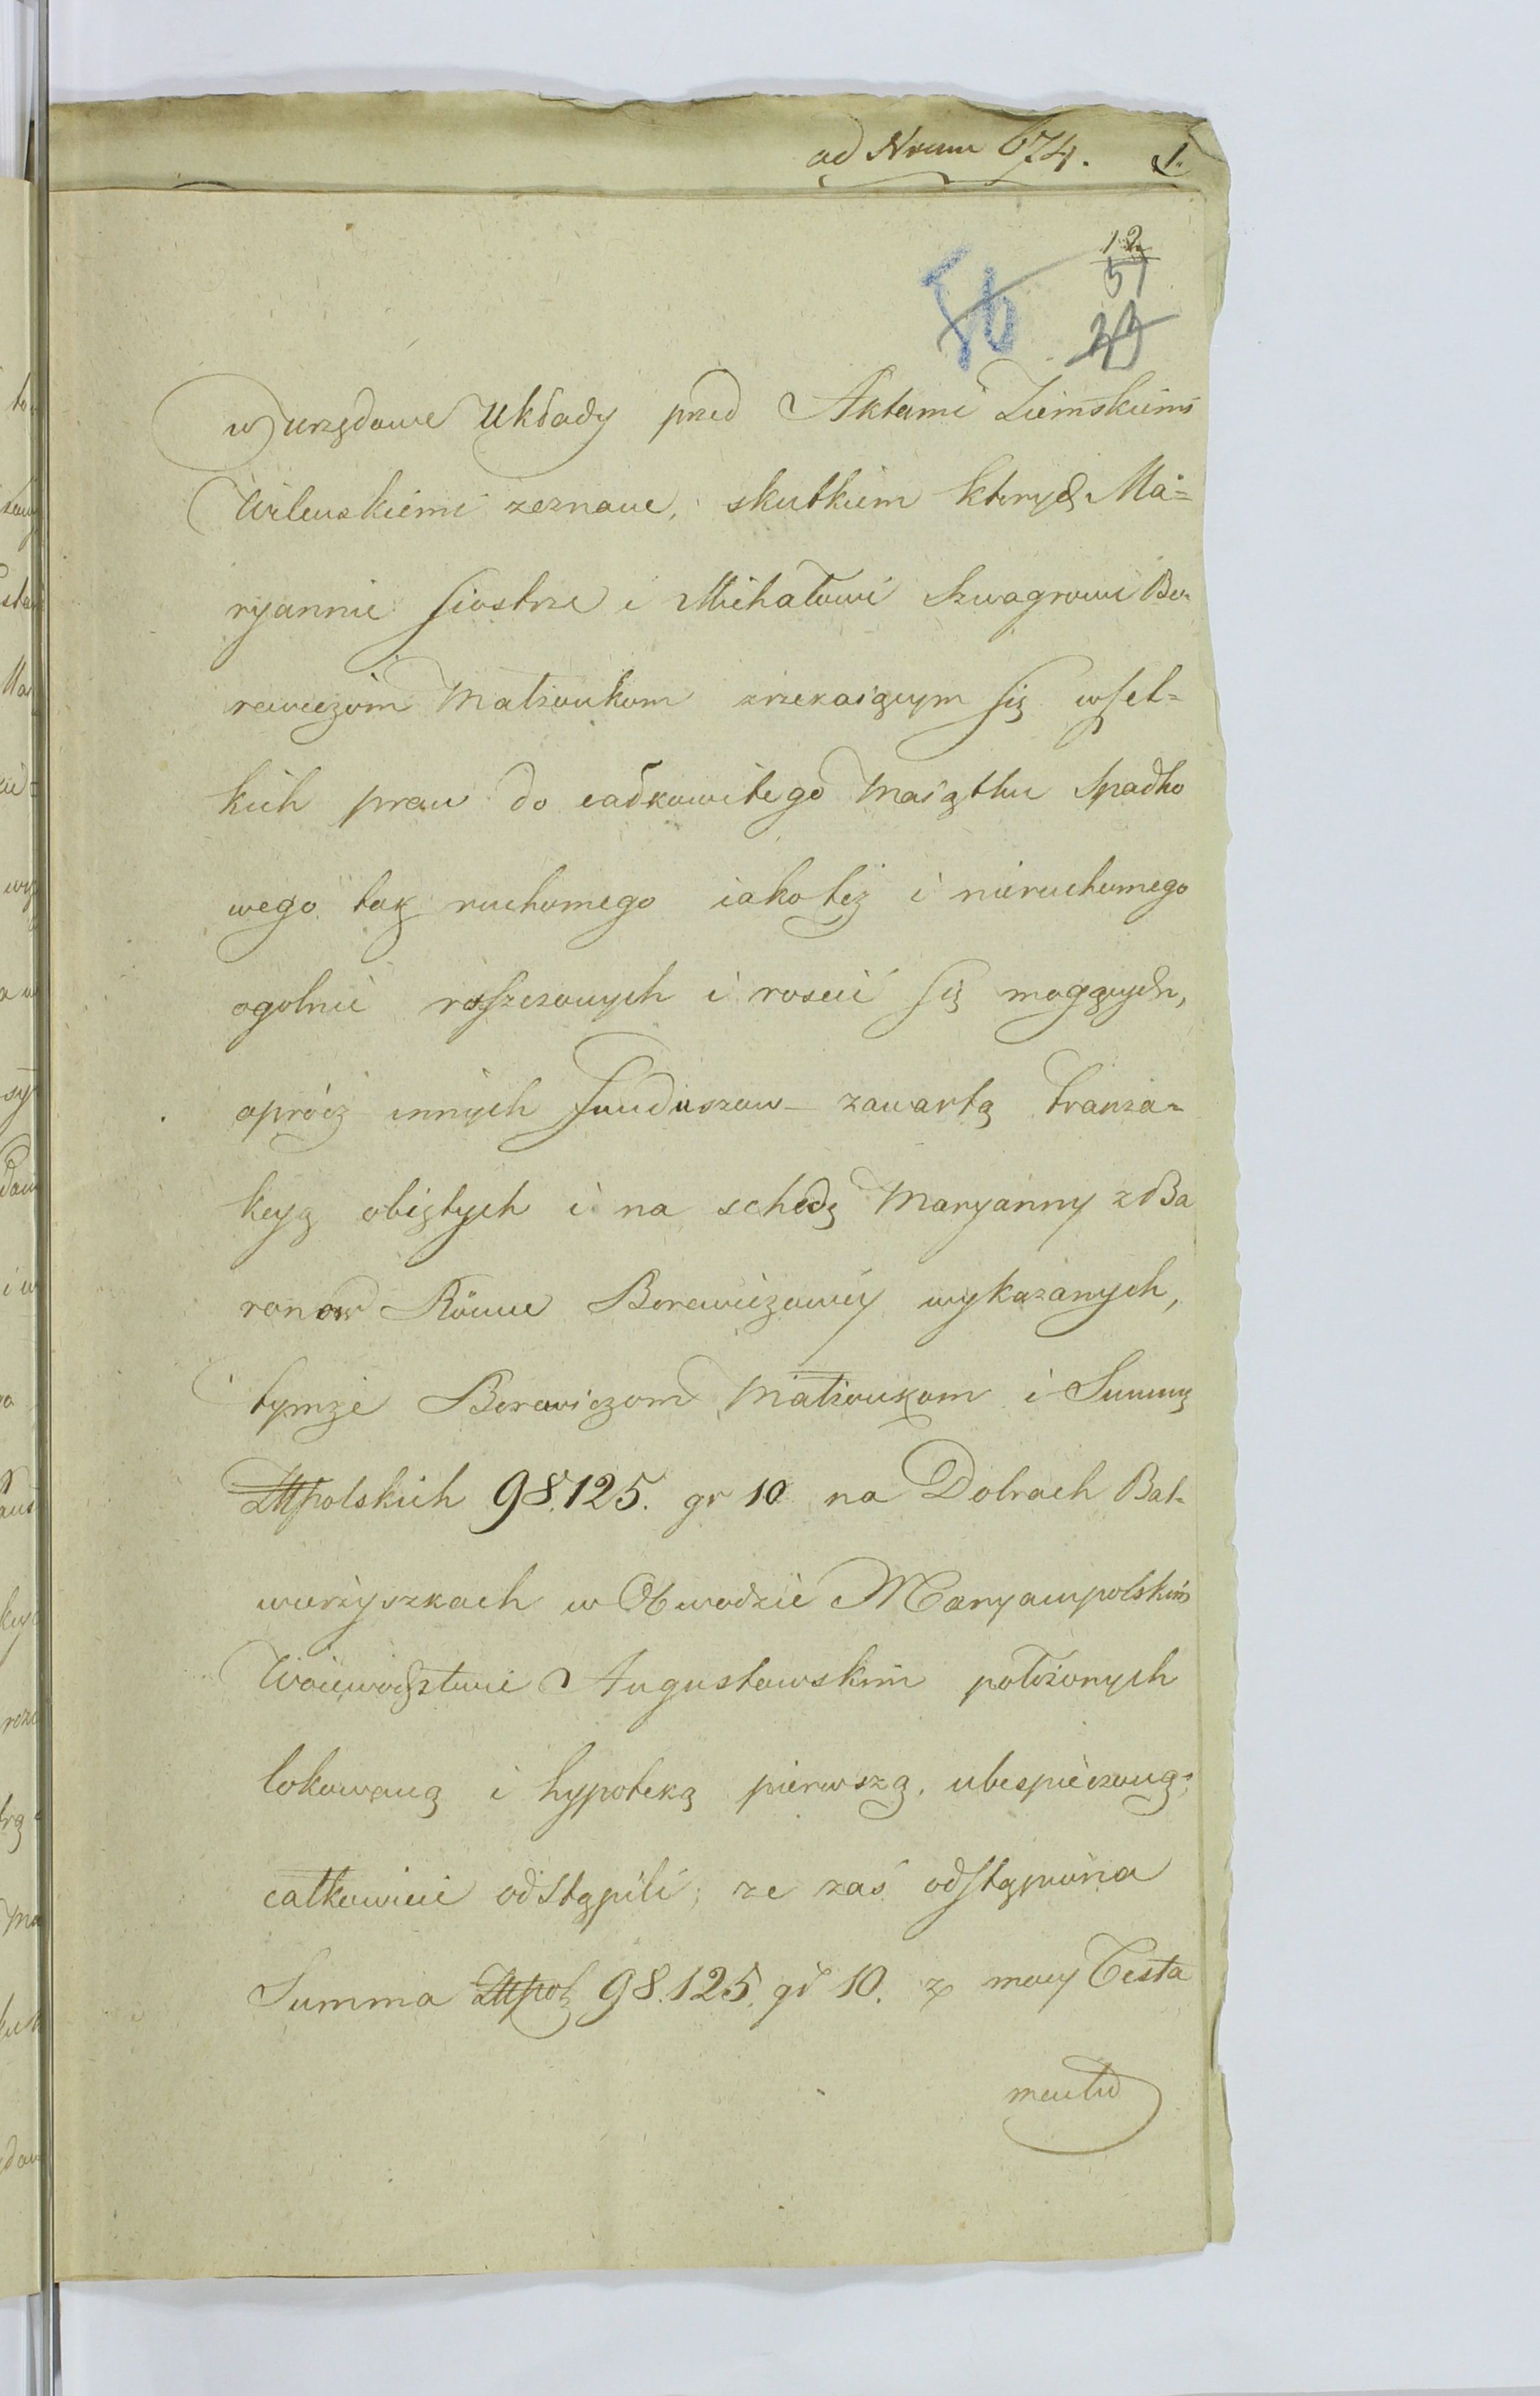 ad Nrum 674. 1.
12
51
56
w urzędowe Układy przed Aktami Ziemskiemi
Wilenskiemi zeznane, skutkiem których Ma=
ryannie Siostrze i Michałowi Szwagrowi Bo-
rewiczom Małżonkom zrzekaiącym się wszel=
kich praw do całkowitego Maiątku Spadko
wego tak ruchomego iakotéż i nieruchomego
ogolnie roszczonych i roscić się mogących,
oprócz innych funduszow zawartą tranza=
kcyą obiętych i na schedę Maryanny z Ba
ronow Rönne Borewiczowéy wykazanych,
tymże Borewiczom Małżonkom i Summę
Złtpolskich 98.125. gr 10 na Dobrach Bal-
wierzyszkach w Obwodzie Maryampolskim
Woiewództwie Augustowskim położonych
lokowaną i hypoteką pierwszą ubespieczoną
całkowicie odstąpili; że zaś odstąpiona
Summa Złtpol 98.125. gr 10. z mocy Testa
mentu